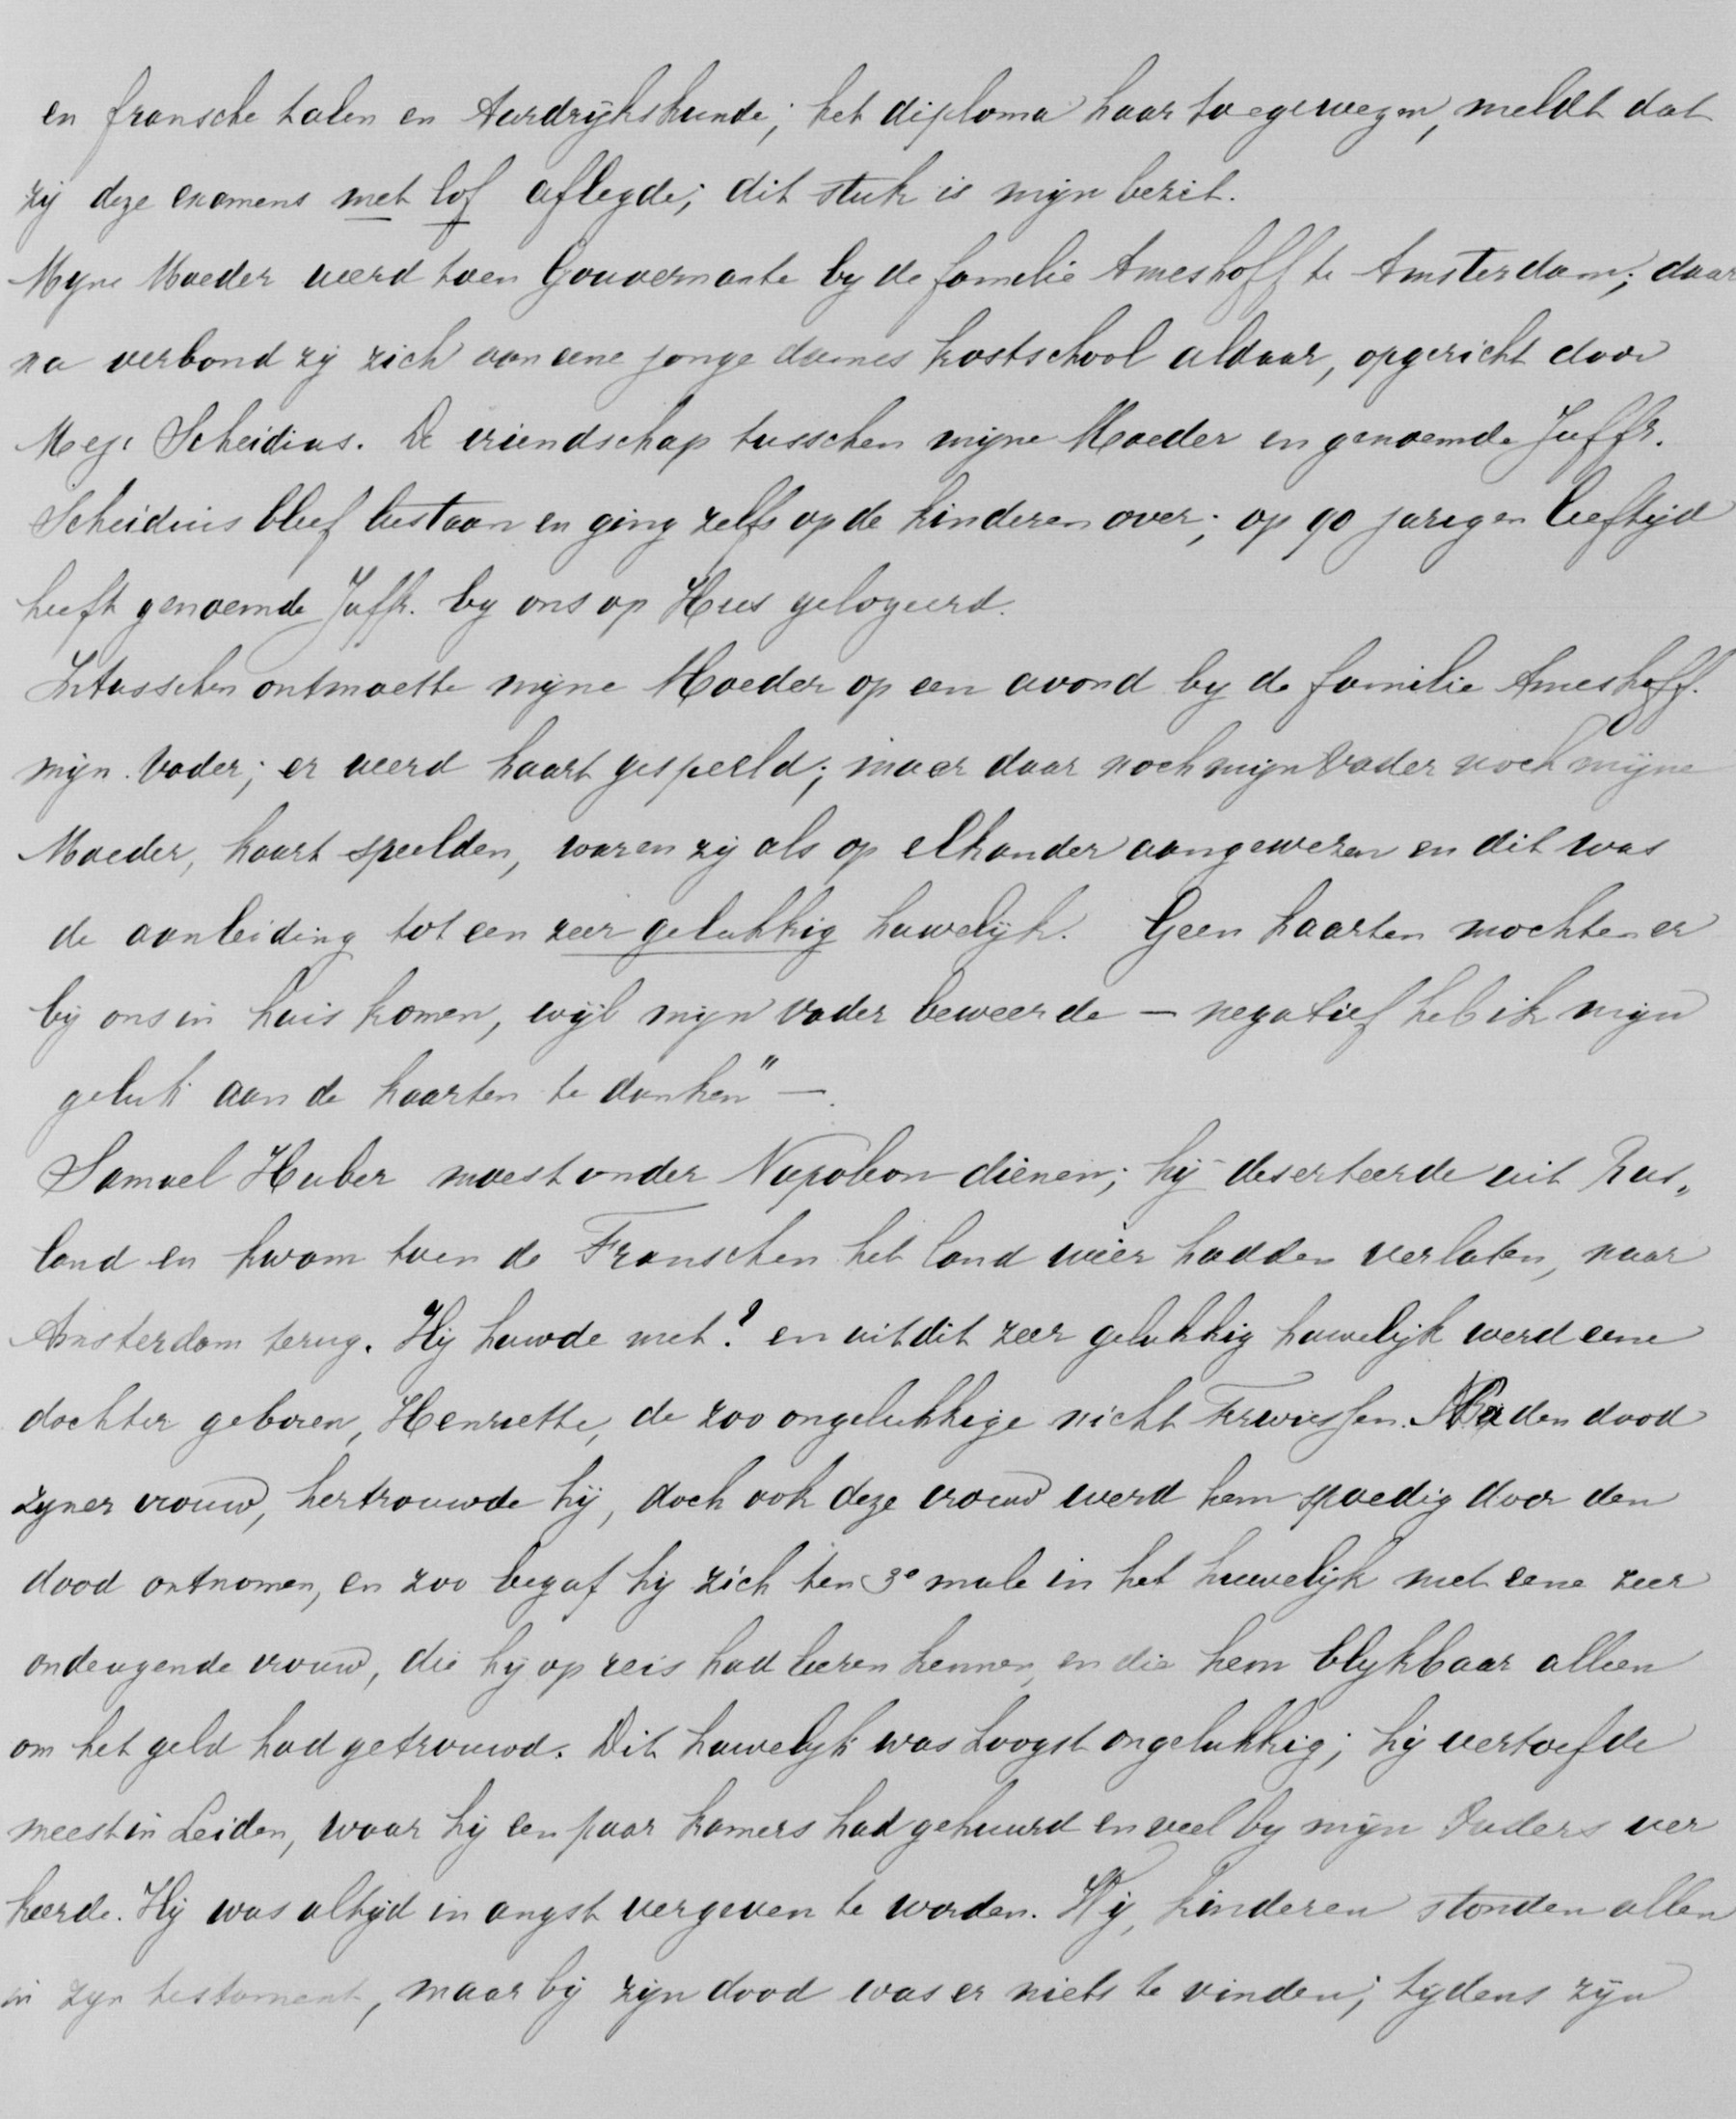 en fransche talen en Aardrijkskunde; het diploma haar toegewezen, meldt dat
zij deze examens met lof aflegde; dit stuk is mijn bezit.
Myne Moeder werd toen Gouvernante by de familie Ameshoff te Amsterdam; daar
na verbond zij zich aan eene jonge dames kostschool aldaar, opgericht door
Mej. Scheidius. De vriendschap tusschen mijne Moeder en genoemde Juffr.
Scheidius bleef bestaan en ging zelfs op de kinderen over; op 90 jarigen leeftijd
heeft genoemde Juffr. by ons op Hees gelogeerd.
Intusschen ontmoette mijne Moeder op een avond by de familie Ameshoff.
mijn Vader; er werd kaart gespeeld; maar daar noch mijn Vader noch mijne
Moeder, kaart speelden, waren zij als op elkander aangewezen en dit was
de aanleiding tot een zeer gelukkig huwelijk. Geen kaarten mochten er
bij ons in huis komen, wijl mijn vader beweerde — negatief heb ik mijn
geluk aan de kaarten te danken" —.
Samuel Huber moest onder Napoleon dienen; hij deserteerde uit Rus„
land en kwam toen de Franschen het land weer hadden verlaten, naar
Amsterdam terug. Hij huwde met? en uit dit zeer gelukkig huwelijk werd eene
dochter geboren, Henriette, de zoo ongelukkige nicht Na den dood
zyner vrouw, hertrouwde hij, doch ook deze vrouw werd hem spoedig door den
dood ontnomen, en zoo begaf hij zich ten 3e male in het huwelijk met eene zeer
ondeugende vrouw, die hij op reis had leeren kennen, en die hem blykbaar alleen
om het geld had getrouwd. Dit huwelijk was hoogst ongelukkig; hij vertoefde
meest in Leiden, waar hij een paar kamers had gehuurd en veel by mijn Ouders ver
keerde. Hij was altijd in angst vergeven te worden. Wij, kinderen stonden allen
in zyn testament, maar bij zijn dood was er niets te vinden; tijdens zijn